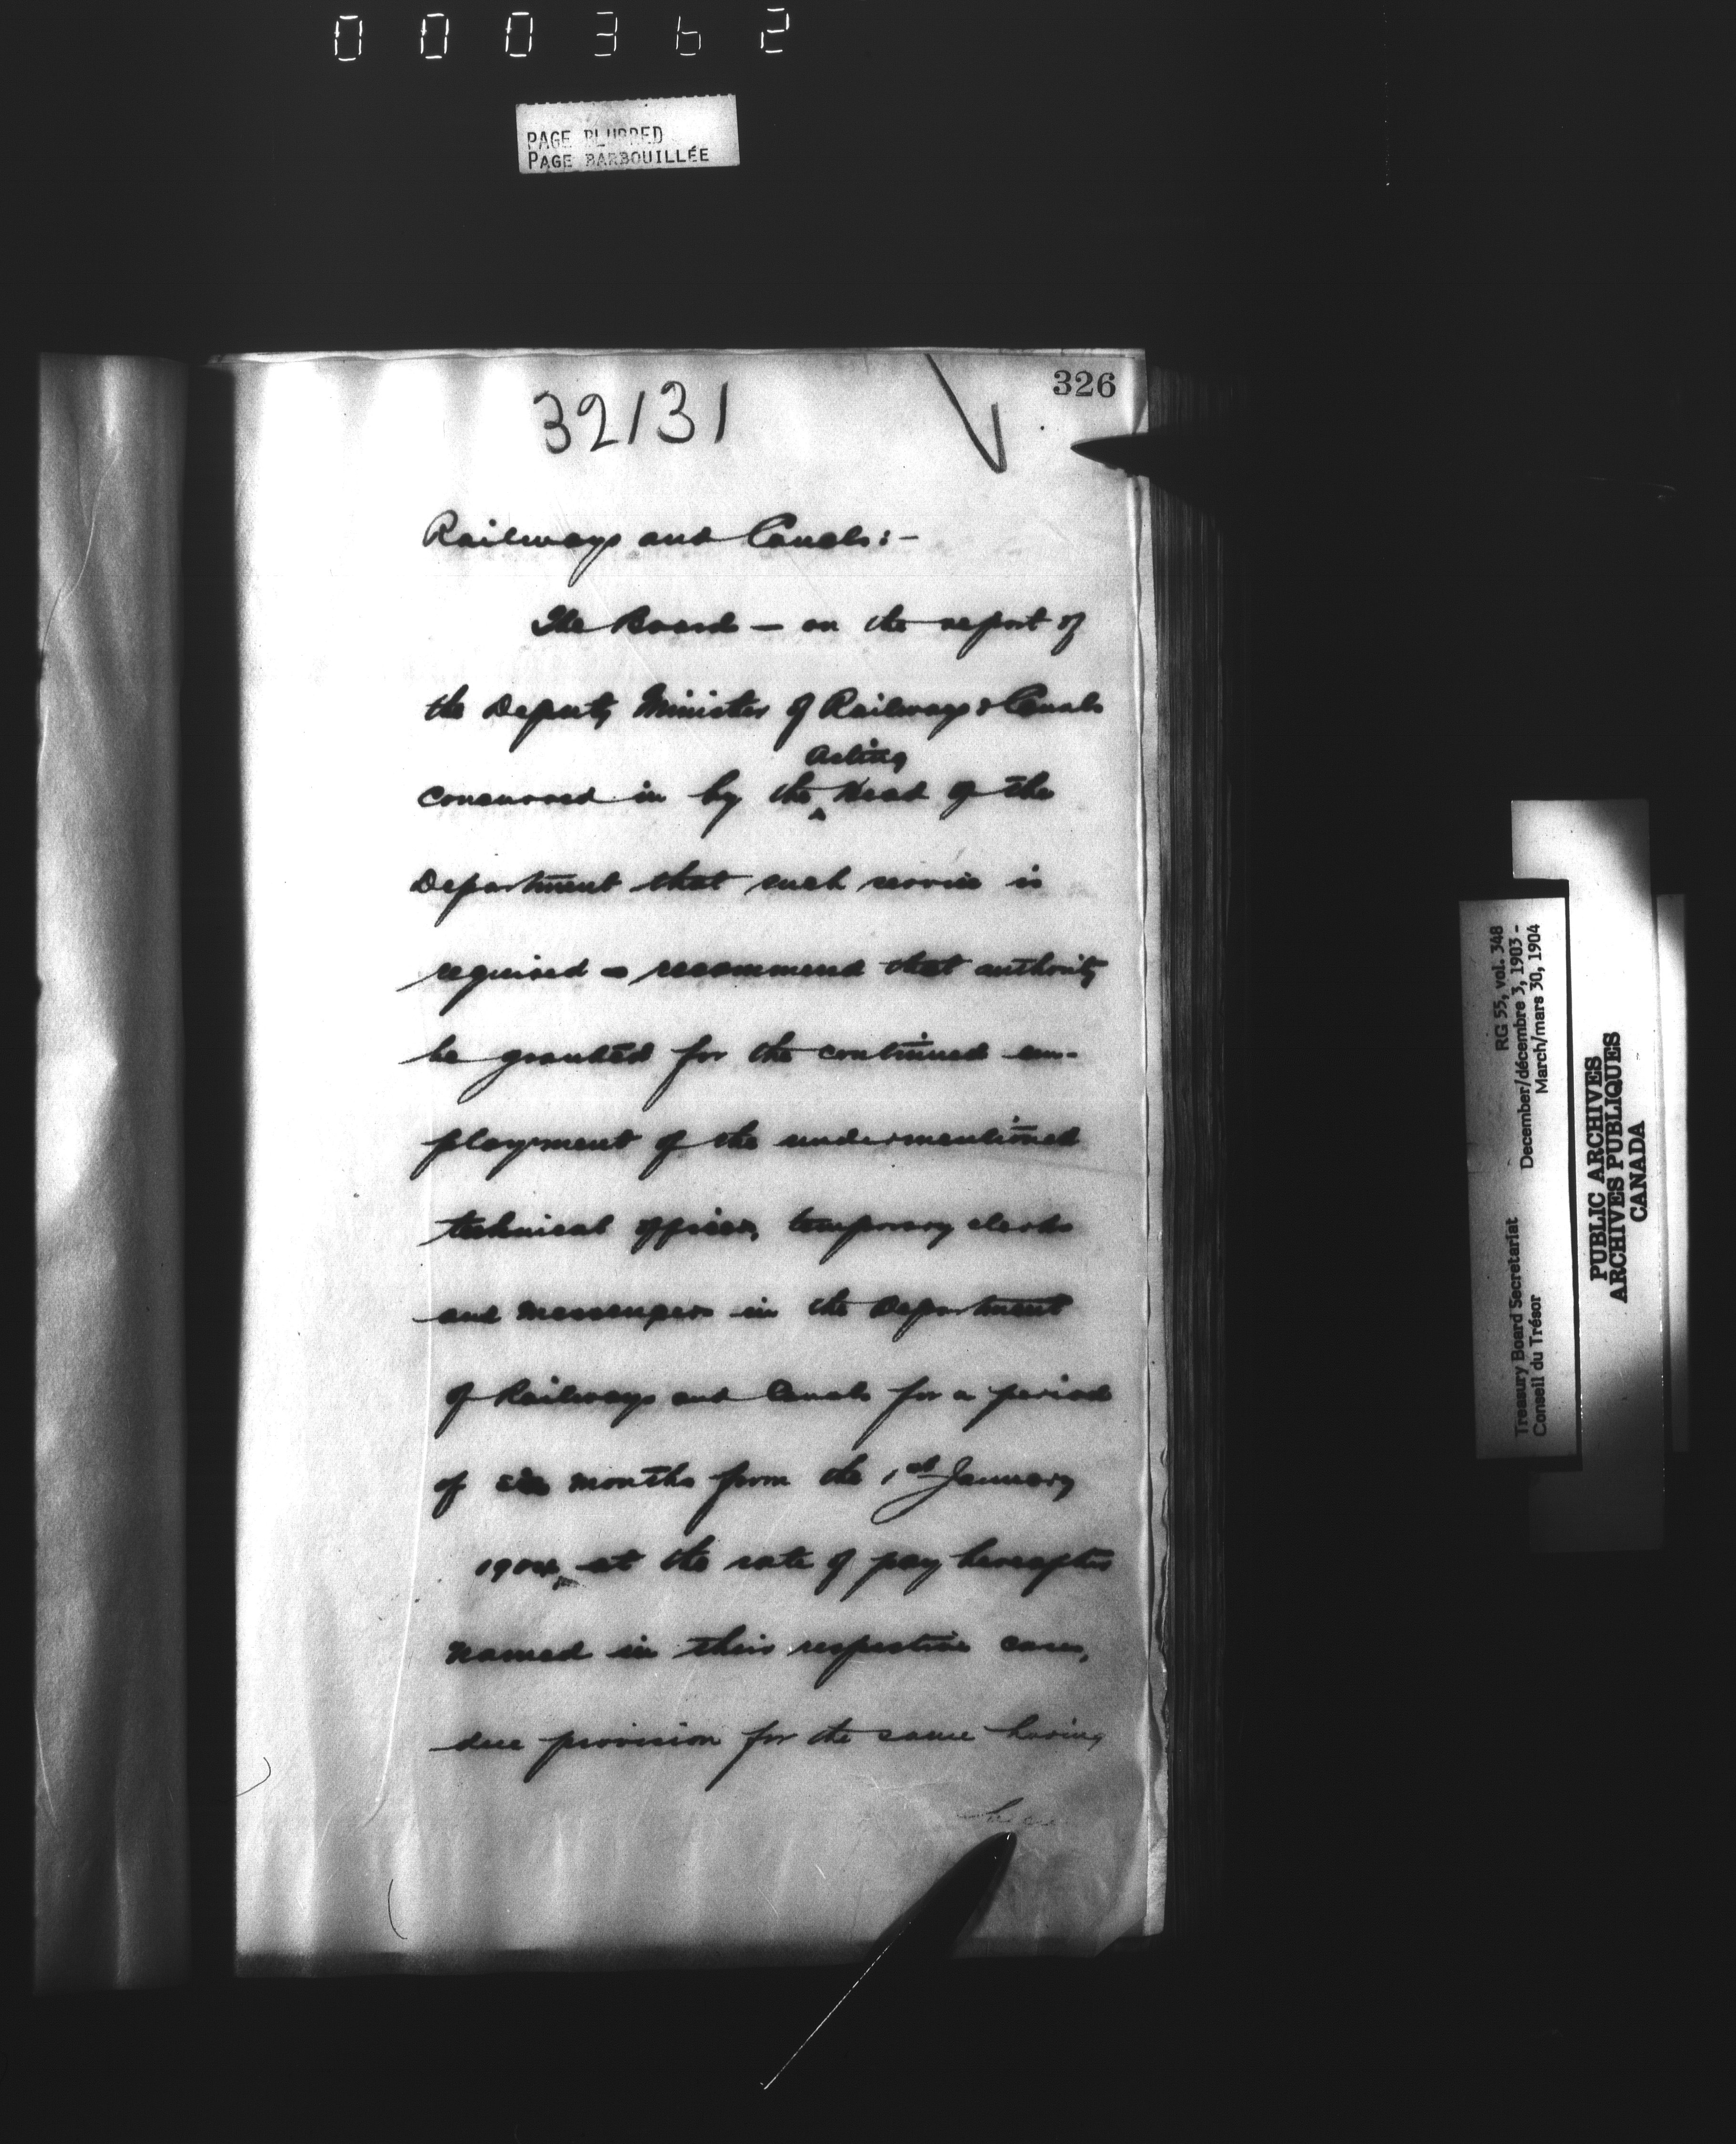 000362
PAGE BLURRED
PAGE BARBOUILLÉE
326
32131
Railways and Canals:-
The Board — on the report of
the Deputy Minister of Railways & Canals
Acting
concurred in by the ^ Head of the
Department that such service is
required — recommend that authority
be granted for the continued em-
ployment of the undermentioned
technical officers, temporary clerks
and messengers in the Department
of Railways and Canals for a period
of six months from the 1st January
1904, at the rate of pay hereafter
named in their respective cases,
due provision for the same having
Treasury Board Secretariat RG 55, vol. 348
Conseil du Trésor December/décembre 3, 1903 -
March/mars 30, 1904
PUBLIC ARCHIVES
ARCHIVES PUBLIQUES
CANADA